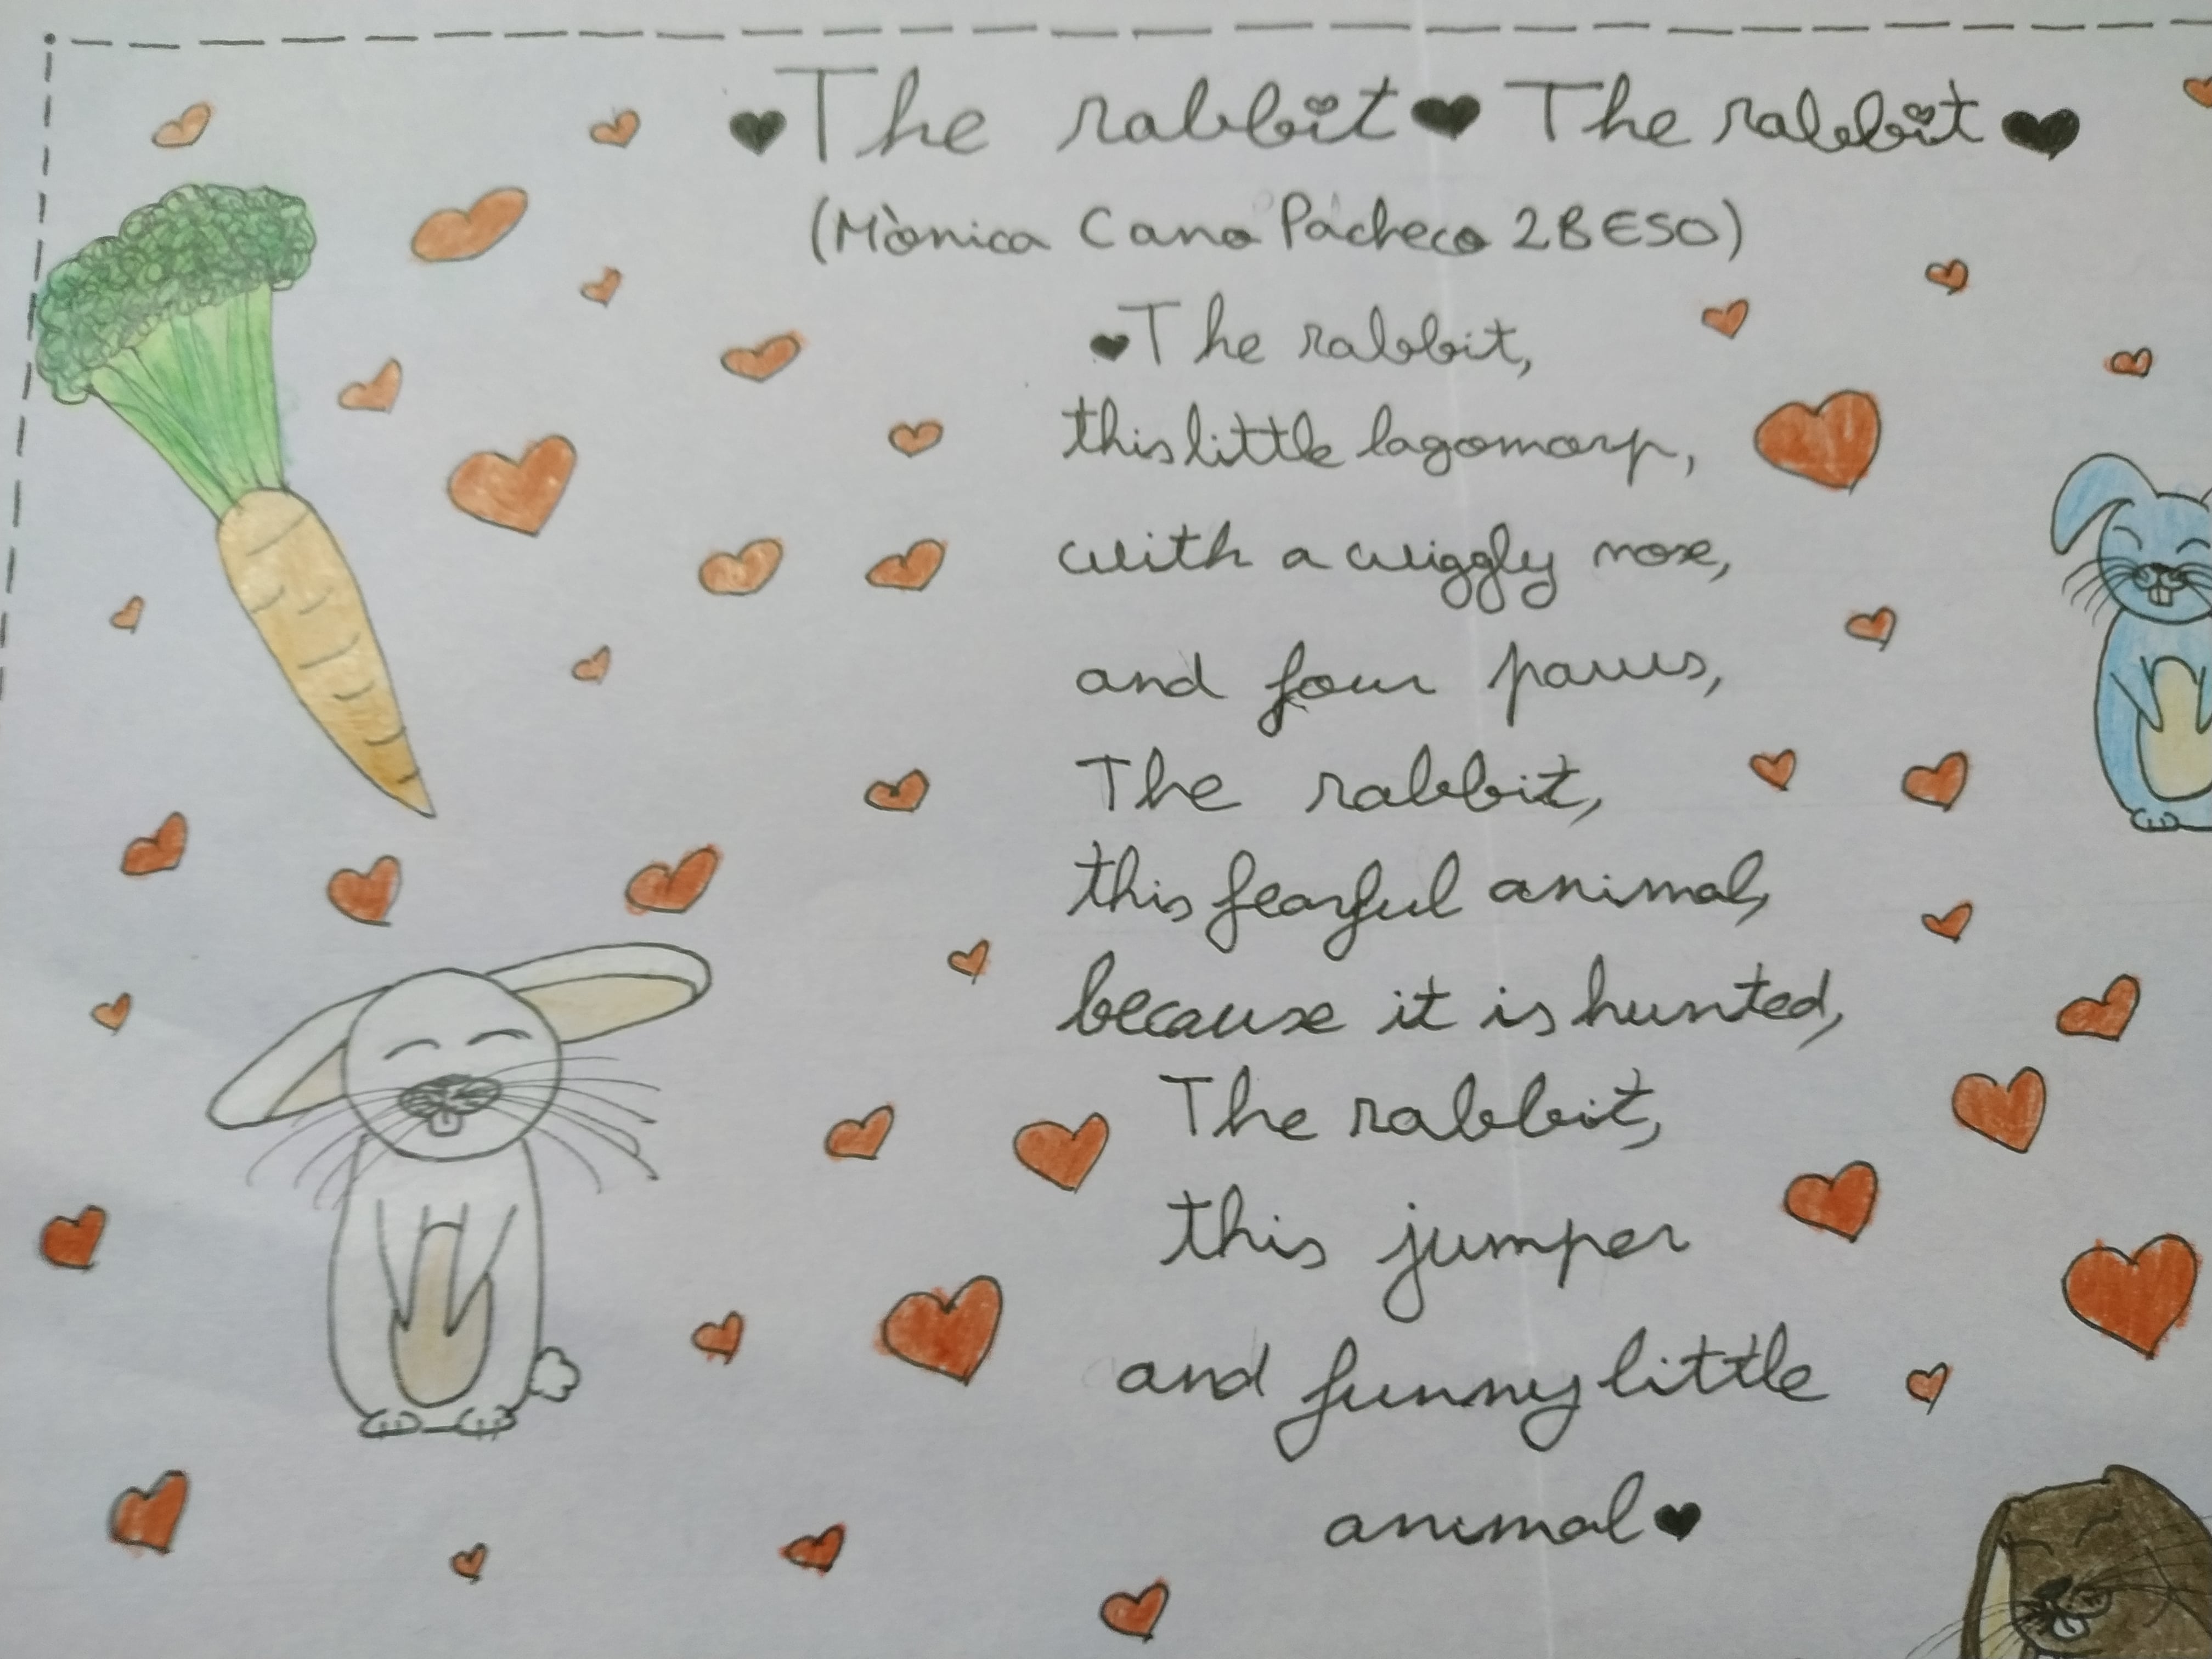 ♥The rabbit♥ The rabbit♥
(Mònica Cano Pacheco 2B ESO)
♥The rabbit,
this little lagomorp,
with a wiggly nose,
and four paws,
The rabbit,
this fearful animal,
because it is hunted,
The rabbit,
this jumper
and funny little
animal♥